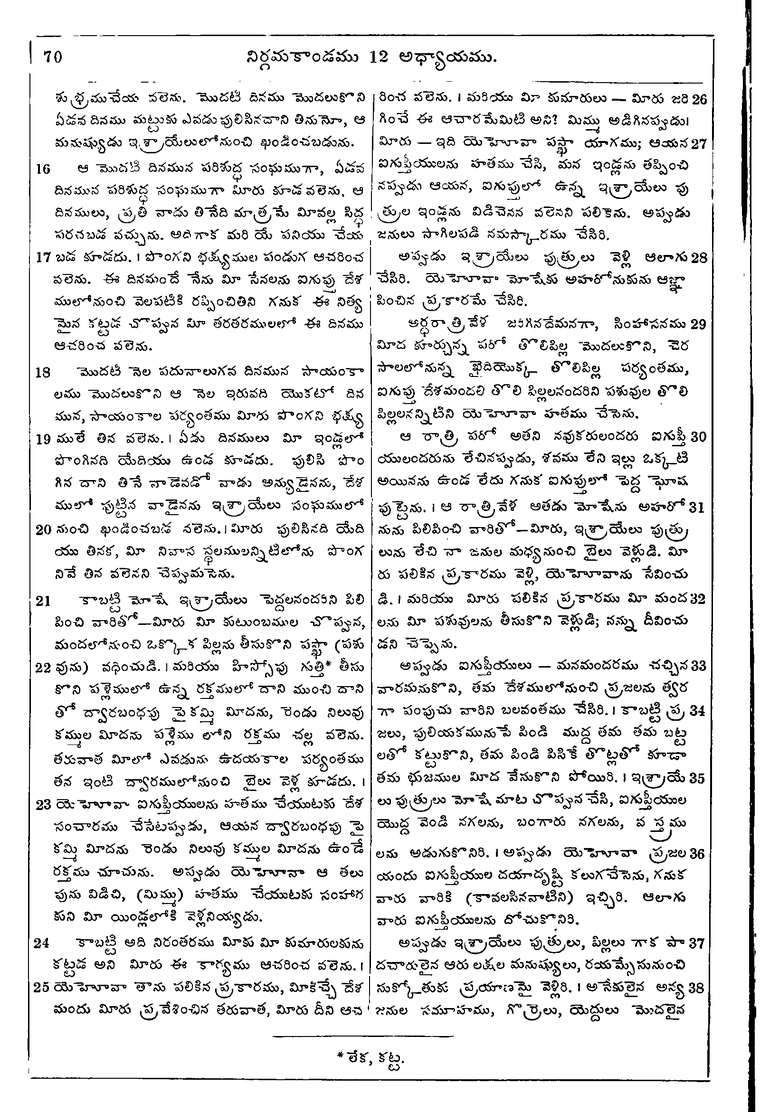 70
నిర్గమకాండము 12 అధ్యాయము.
శుభ్రముచేయ వలెను. మొదటి దినము మొదలుకొని
ఏడవ దినము మట్టుకు ఎవడు పులిసినదాని తినునో, ఆ
మనుష్యుడు ఇశ్రాయేలులోనుంచి ఖండించబడును.
16 ఆ మొదటి దినమున పరిశుద్ధ సంఘముగా, ఏడవ
దినమున పరిశుద్ధ సంఘముగా మీరు కూడవలెను. ఆ
దినములు, ప్రతి వాడు తినేది మాత్రమే మీవల్ల సిద్ధ
పరచబడ వచ్చును. అదిగాక మరి యే పనియు చేయ
17 బడ కూడదు. । పొంగని భక్ష్యముల పండుగ ఆచరించ
వలెను. ఈ దినమందే నేను మీ సేనలను ఐగుప్తు దేశ
ములోనుంచి వెలపటికి రప్పించితిని గనుక ఈ నిత్య
మైన కట్టడ చొప్పున మీ తరతరములలో ఈ దినము
ఆచరించ వలెను.
18 మొదటి నెల పదునాలుగవ దినమున సాయంకా
లము మొదలుకొని ఆ నెల ఇరువది యొకటో దిన
మున, సాయంకాల పర్యంతము మీరు పొంగని భక్ష్య
19 ములే తిన వలెను. । ఏడు దినములు మీ ఇండ్లలో
పొంగినది యేదియు ఉండ కూడదు. పులిసి పొం
గిన దాని తినే వాడెవడో వాడు అన్యుడైనను, దేశ
ములో పుట్టిన వాడైనను ఇశ్రాయేలు సంఘములో
20 నుంచి ఖండించబడ వలెను. । మీరు పులిసినది యేది
యు తినక, మీ నివాస స్థలములన్నిటిలోను పొంగ
నివే తిన వలెనని చెప్పుమనెను.
21 కాబట్టి మోషే ఇశ్రాయేలు పెద్దలనందరిని పిలి
పించి వారితో—మీరు మీ కుటుంబముల చొప్పున,
మందలోనుంచి ఒక్కొక పిల్లను తీసుకొని పస్ఖా (పశు
22 వును) వధించుడి. । మరియు హిస్సోపు గుత్తి* తీసు
కొని పళ్లెములో ఉన్న రక్తములో దాని ముంచి దాని
తో ద్వారబంధపు పైకమ్మి మీదను, రెండు నిలువు
కమ్ముల మీదను పళ్లెము లోని రక్తము చల్ల వలెను.
తరువాత మీలో ఎవడును ఉదయకాల పర్యంతము
తన ఇంటి ద్వారములోనుంచి బైలు వెళ్ల కూడదు. ।
23 యెహోవా ఐగుప్తీయులను హతము చేయుటకు దేశ
సంచారము చేసేటప్పుడు, ఆయన ద్వారబంధపు పై
కమ్మి మీదను రెండు నిలువు కమ్ముల మీదను ఉండే
రక్తము చూచును. అప్పుడు యెహోవా ఆ తలు
పును విడిచి, (మిమ్ము) హతము చేయుటకు సంహార
కుని మీ యిండ్లలోకి వెళ్లనియ్యడు.
24 కాబట్టి అది నిరంతరము మీకు మీ కుమారులకును
కట్టడ అని మీరు ఈ కార్యము ఆచరించ వలెను. ।
25 యెహోవా తాను పలికిన ప్రకారము, మీకిచ్చే దేశ
మందు మీరు ప్రవేశించిన తరువాత, మీరు దీని ఆచ
రించ వలెను. । మరియు మీ కుమారులు — మీరు జరి 26
గించే ఈ ఆచారమేమిటి అని? మిమ్ము అడిగినప్పుడు।
మీరు — ఇది యెహోవా పస్ఖా యాగము; ఆయన 27
ఐగుప్తీయులను హతము చేసి, మన ఇండ్లను తప్పించి
నప్పుడు ఆయన, ఐగుప్తులో ఉన్న ఇశ్రాయేలు పు
త్రుల ఇండ్లను విడిచెనన వలెనని పలికెను. అప్పుడు
జనులు సాగిలపడి నమస్కారము చేసిరి.
అప్పుడు ఇశ్రాయేలు పుత్రులు వెళ్లి ఆలాగు 28
చేసిరి. యెహోవా మోషేకు అహరోనుకును ఆజ్ఞా
పించిన ప్రకారమే చేసిరి.
అర్ధరాత్రి వేళ జరిగినదేమనగా, సింహాసనము 29
మీద కూర్చున్న ఫరో తొలిపిల్ల మొదలుకొని, చెర
సాలలోనున్న ఖైదియొక్క తొలిపిల్ల పర్యంతము,
ఐగుప్తు దేశమందలి తొలి పిల్లలనందరిని పశువుల తొలి
పిల్లలనన్నిటిని యెహోవా హతము చేసెను.
ఆ రాత్రి ఫరో అతని నవుకరులందరు ఐగుప్తీ 30
యులందరును లేచినప్పుడు, శవము లేని ఇల్లు ఒక్కటి
అయినను ఉండ లేదు గనుక ఐగుప్తులో పెద్ద ఘోష
పుట్టెను. । ఆ రాత్రి వేళ అతడు మోషేను అహరో 31
నును పిలిపించి వారితో—మీరు, ఇశ్రాయేలు పుత్రు
లును లేచి నా జనుల మధ్యనుంచి బైలు వెళ్లుడి. మీ
రు పలికిన ప్రకారము వెళ్లి, యెహోవాను సేవించు
డి. । మరియు మీరు పలికిన ప్రకారము మీ మంద 32
లను మీ పశువులను తీసుకొని వెళ్లుడి; నన్ను దీవించు
డని చెప్పెను.
అప్పుడు ఐగుప్తీయులు — మనమందరము చచ్చిన 33
వారమనుకొని, తమ దేశములోనుంచి ప్రజలను త్వర
గా పంపుచు వారిని బలవంతము చేసిరి. । కాబట్టి ప్ర 34
జలు, పులియకమునుపే పిండి ముద్ద తమ తమ బట్ట
లతో కట్టుకొని, తమ పిండి పిసికే తొట్లతో కూడా
తమ భుజముల మీద వేసుకొని పోయిరి. । ఇశ్రాయే 35
లు పుత్రులు మోషే మాట చొప్పున చేసి, ఐగుప్తీయుల
యొద్ద వెండి నగలను, బంగారు నగలను, వస్త్రము
లను అడుగుకొనిరి. । అప్పుడు యెహోవా ప్రజల 36
యందు ఐగుప్తీయుల దయాదృష్టి కలుగచేసెను, గనుక
వారు వారికి (కావలసినవాటిని) ఇచ్చిరి. ఆలాగు
వారు ఐగుప్తీయులను దోచుకొనిరి.
అప్పుడు ఇశ్రాయేలు పుత్రులు, పిల్లలు గాక పా 37
దచారులైన ఆరు లక్షల మనుష్యులు, రయమ్సేసునుంచి
సుక్కోతుకు ప్రయాణమై వెళ్లిరి. । అనేకులైన అన్య 38
జనుల సమూహము, గొర్రెలు, యెద్దులు మొదలైన
* లేక, కట్ట.